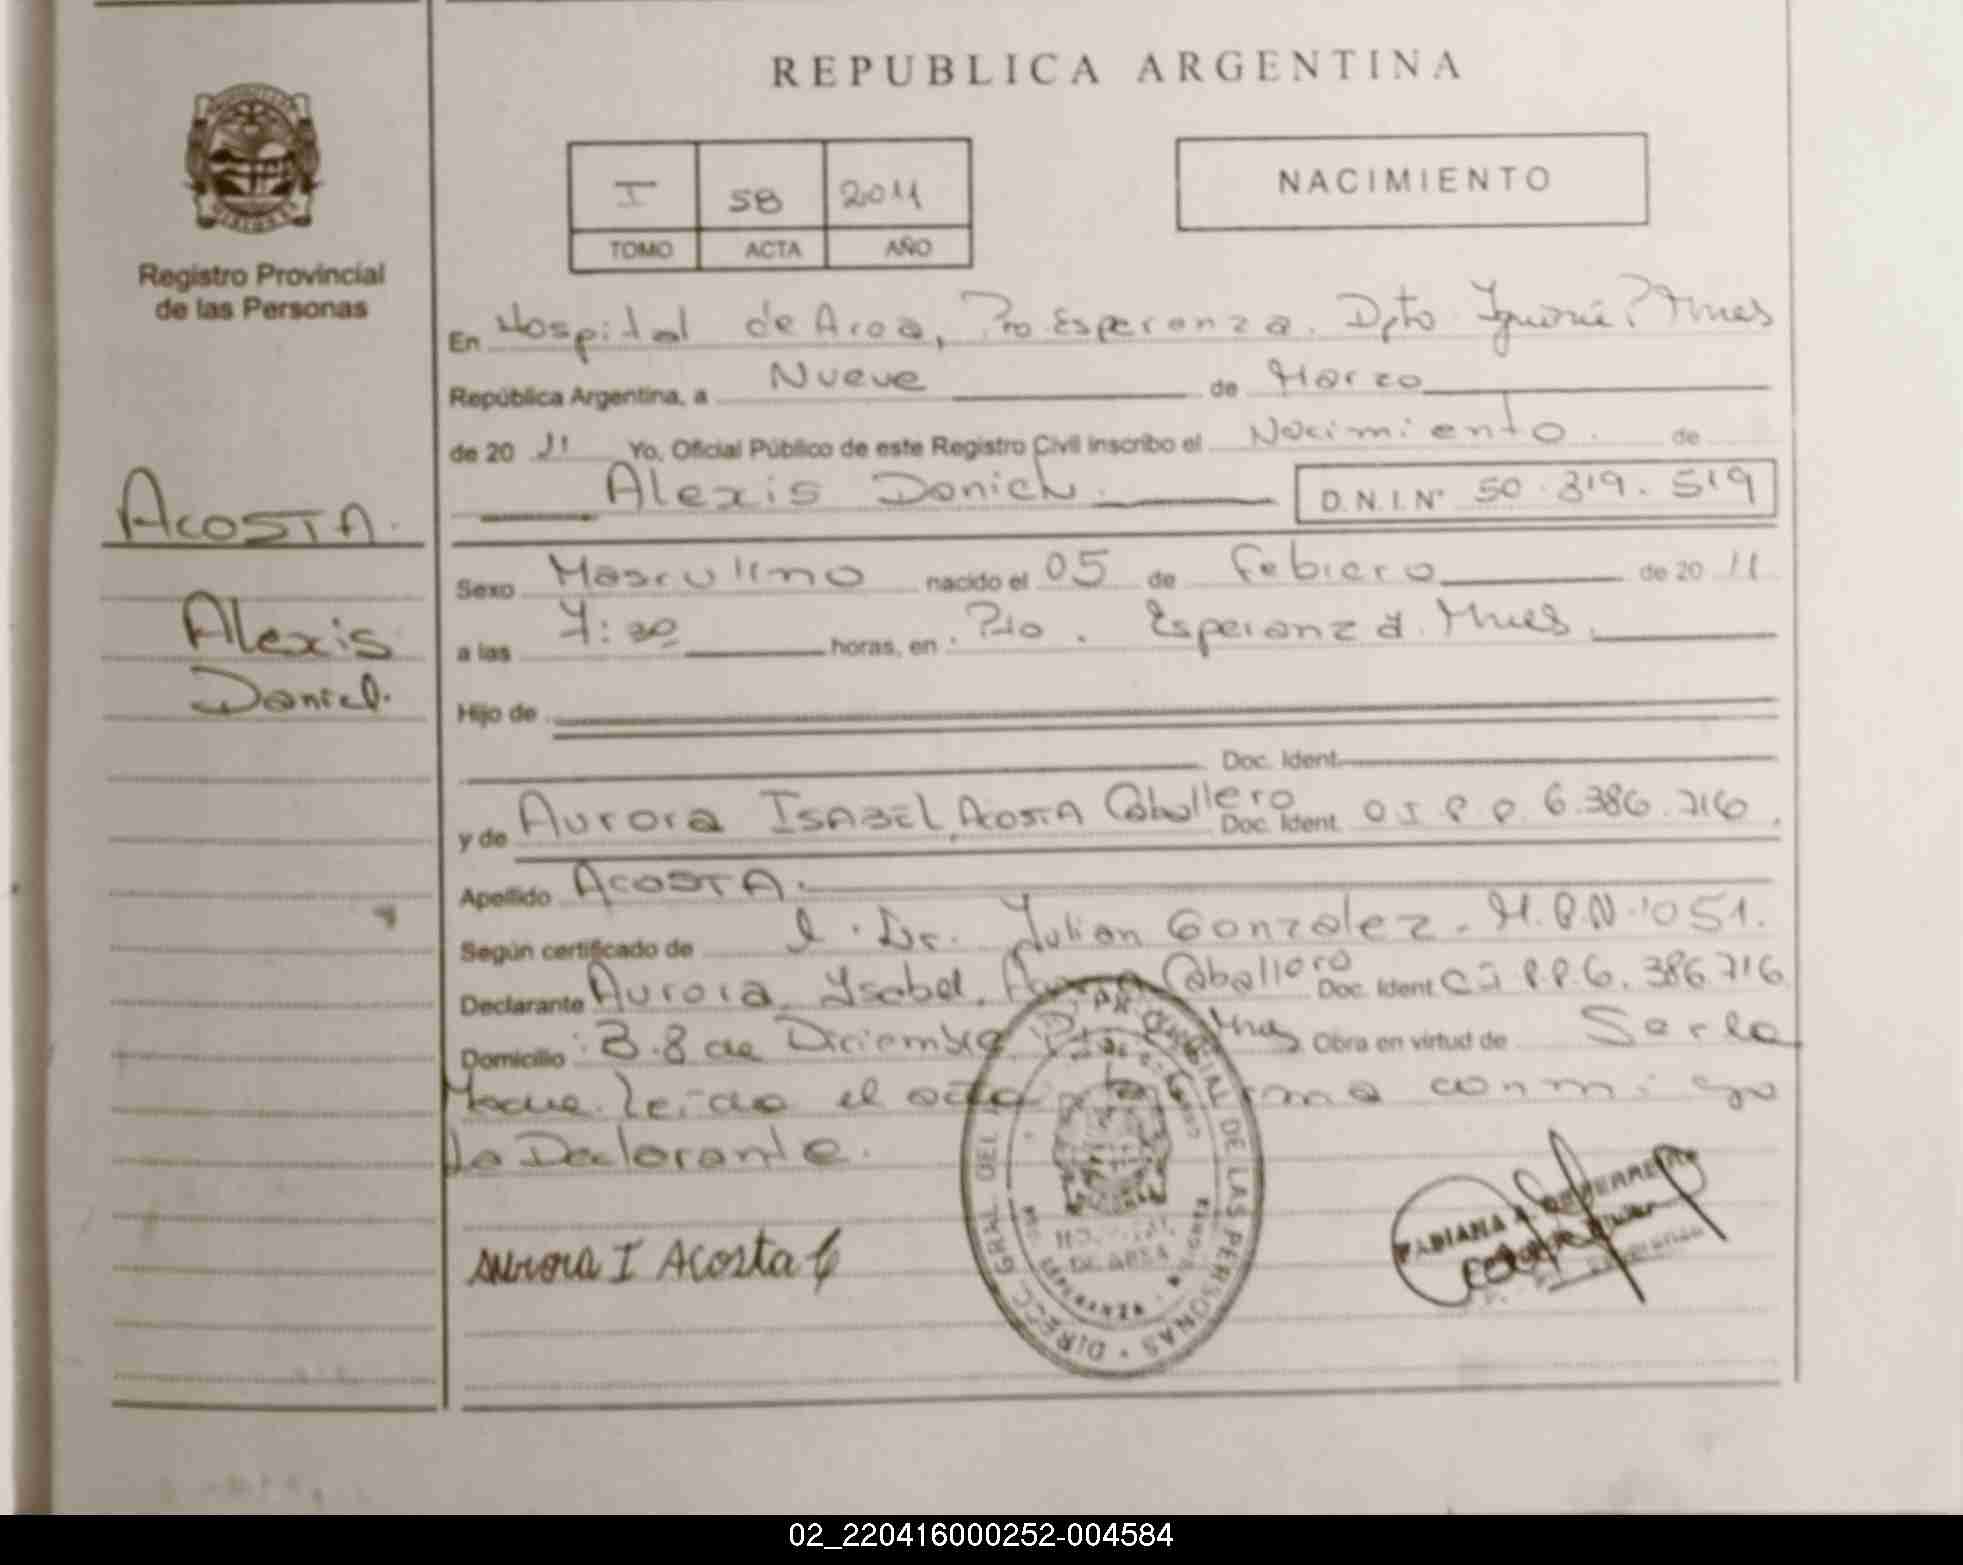 REPUBLICA ARGENTINA
Registro Provincial
de las Personas
I 58 2011
TOMO ACTA AÑO
NACIMIENTO
ACOSTA.
Alexis
Daniel.
En Hospital de Area, Pto Esperanza. Dpto Iguazú
República Argentina, a Nueve de Marzo
de 20 11 Yo, Oficial Público de este Registro Civil inscribo el Nacimiento. de
Alexis Daniel. D.N.I.N° 50.319.519
Sexo Masculino nacido el 05 de Febrero de 20 11
a las horas, en Pto. Esperanza.
Hijo de
Doc. Ident.
y de Aurora ISABEL ACOSTA Caballero Doc. Ident. 6.386.716.
Apellido ACOSTA.
Según certificado de Dr. Julian Gonzalez. M.P.N. 1051.
Declarante Aurora Ysabel, Caballero Doc. Ident. P.P. 6.386.716
Domicilio B. 8 de Diciembre Obra en virtud de Ser la
leida el acta conmigo
la Declarante.
Aurora I Acosta C
DIRECC. GRAL. DEL DE LAS PERSONAS
DE AREA
ESPERANZA
FABIANA
02_220416000252-004584